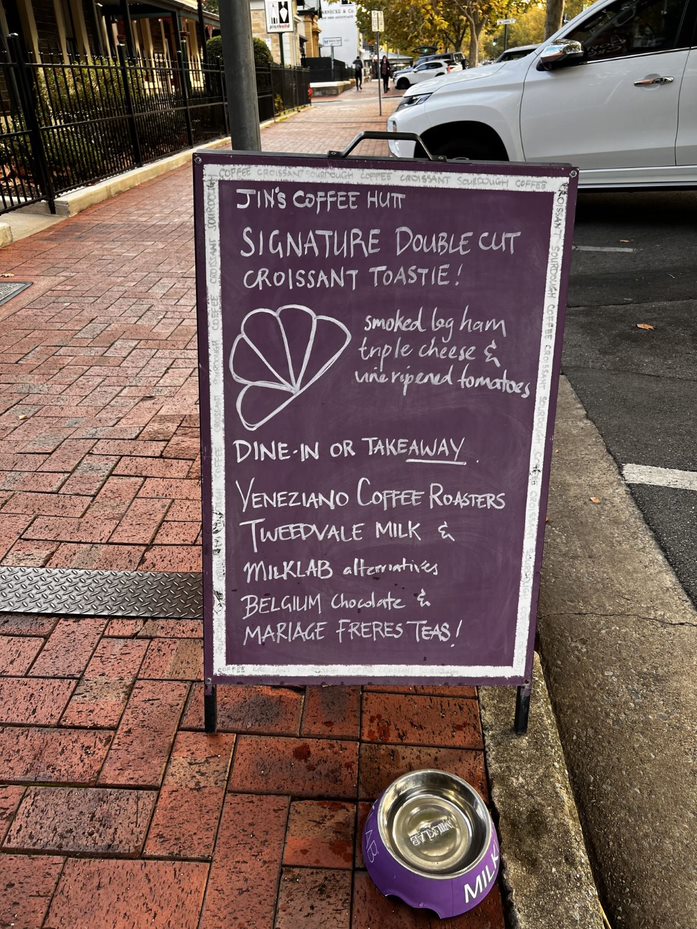 COFFEE CROISSANT SOURDOUGH COFFEE CROISSANT SOURDOUGH COFFEE
JIN'S COFFEE HUTT
SIGNATURE DOUBLE CUT
CROISSANT TOASTIE!
smoked leg ham
triple cheese &
vine ripened tomatoes
DINE-IN OR TAKEAWAY
VENEZIANO COFFEE ROASTERS
TWEEDVALE MILK &
MILKLAB alternatives
BELGIUM Chocolate &
MARIAGE FRERES TEAS!
CROISSANT SOURDOUGH COFFEE CROISSANT
MILKLAB
AB
MILK